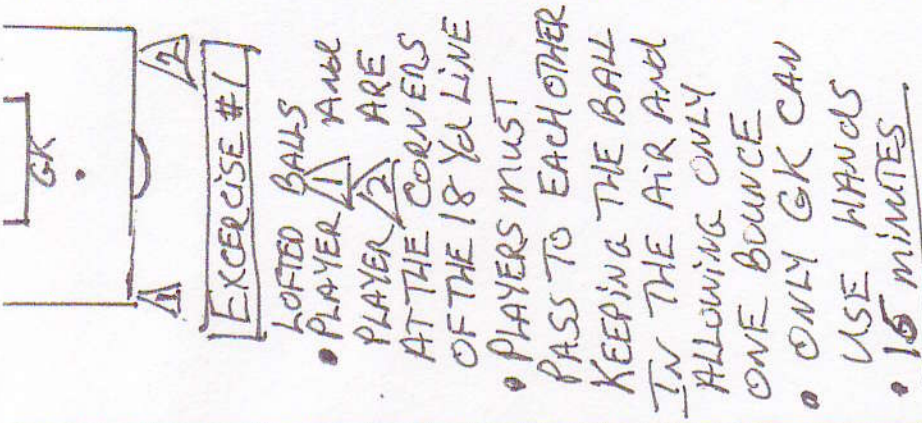 GK
1 2
EXCERCISE #1
LOFTED BALLS
• PLAYER 1 And
PLAYER 2 ARE
AT THE CORNERS
OF THE 18 Yd LINE
• PLAYERS MUST
PASS TO EACH OTHER
KEEPING THE BALL
IN THE AIR And
ALLOWING ONLY
ONE BOUNCE
• ONLY GK CAN
USE HANdS
• 15 minUTES